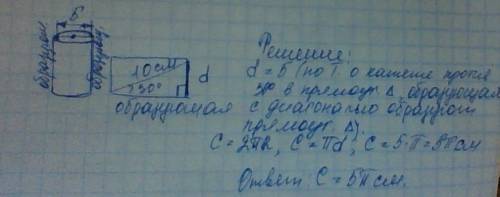 5
образующ.
образующ.
10 см
30°
d
образующая
Решение:
d = 5 (по т. о катете против
30° в прямоуг. Δ, образующая
с диагональю образуют
прямоуг. Δ).
C = 2πR, C = πd, C = 5·π = 5π см
Ответ: C = 5π см.